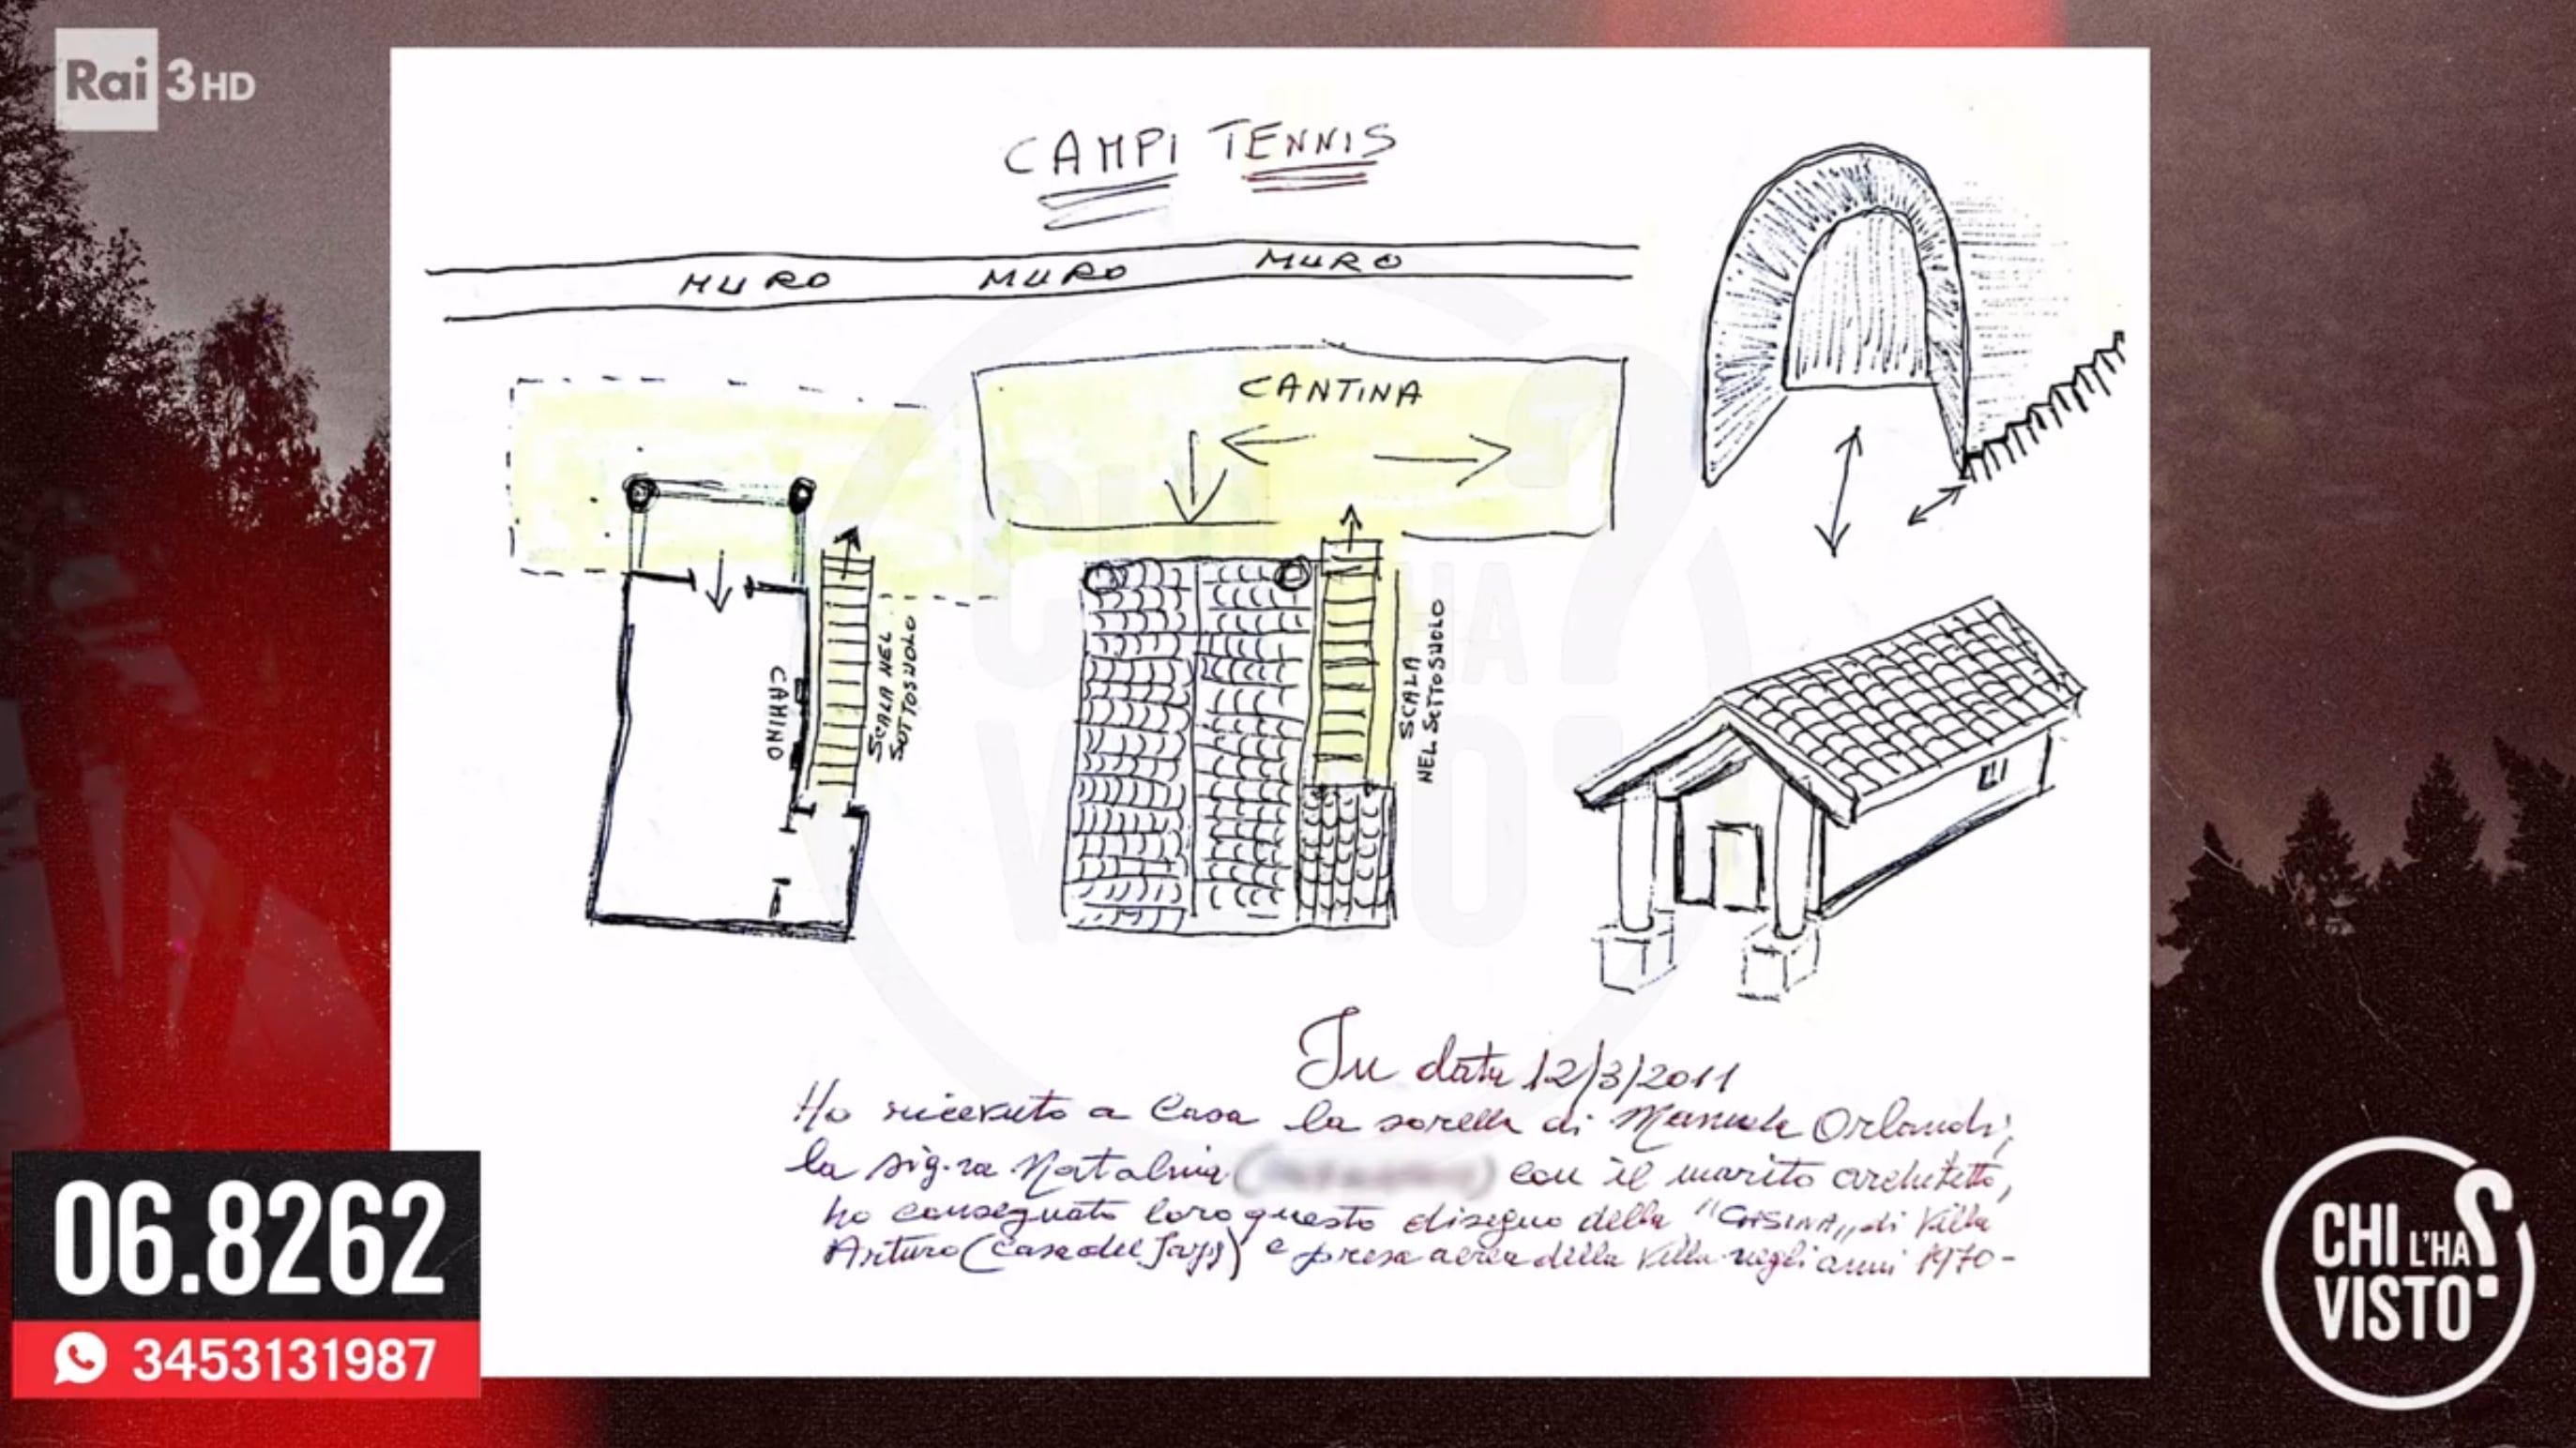 Rai 3 HD
CAMPI TENNIS
MURO MURO MURO
CANTINA
CAMINO
SCALA NEL
SOTTOSUOLO
SCALA
NEL SOTTOSUOLO
In data 12/3/2011
Ho ricevuto a casa la sorella di Manuela Orlandi,
la sig.ra Natalina ( ) con il marito architetto,
ho consegnato loro questo disegno della " di Villa
Arturo (casa del ) e presa aerea della Villa negli anni 1970-
06.8262
3453131987
CHI L'HA VISTO?